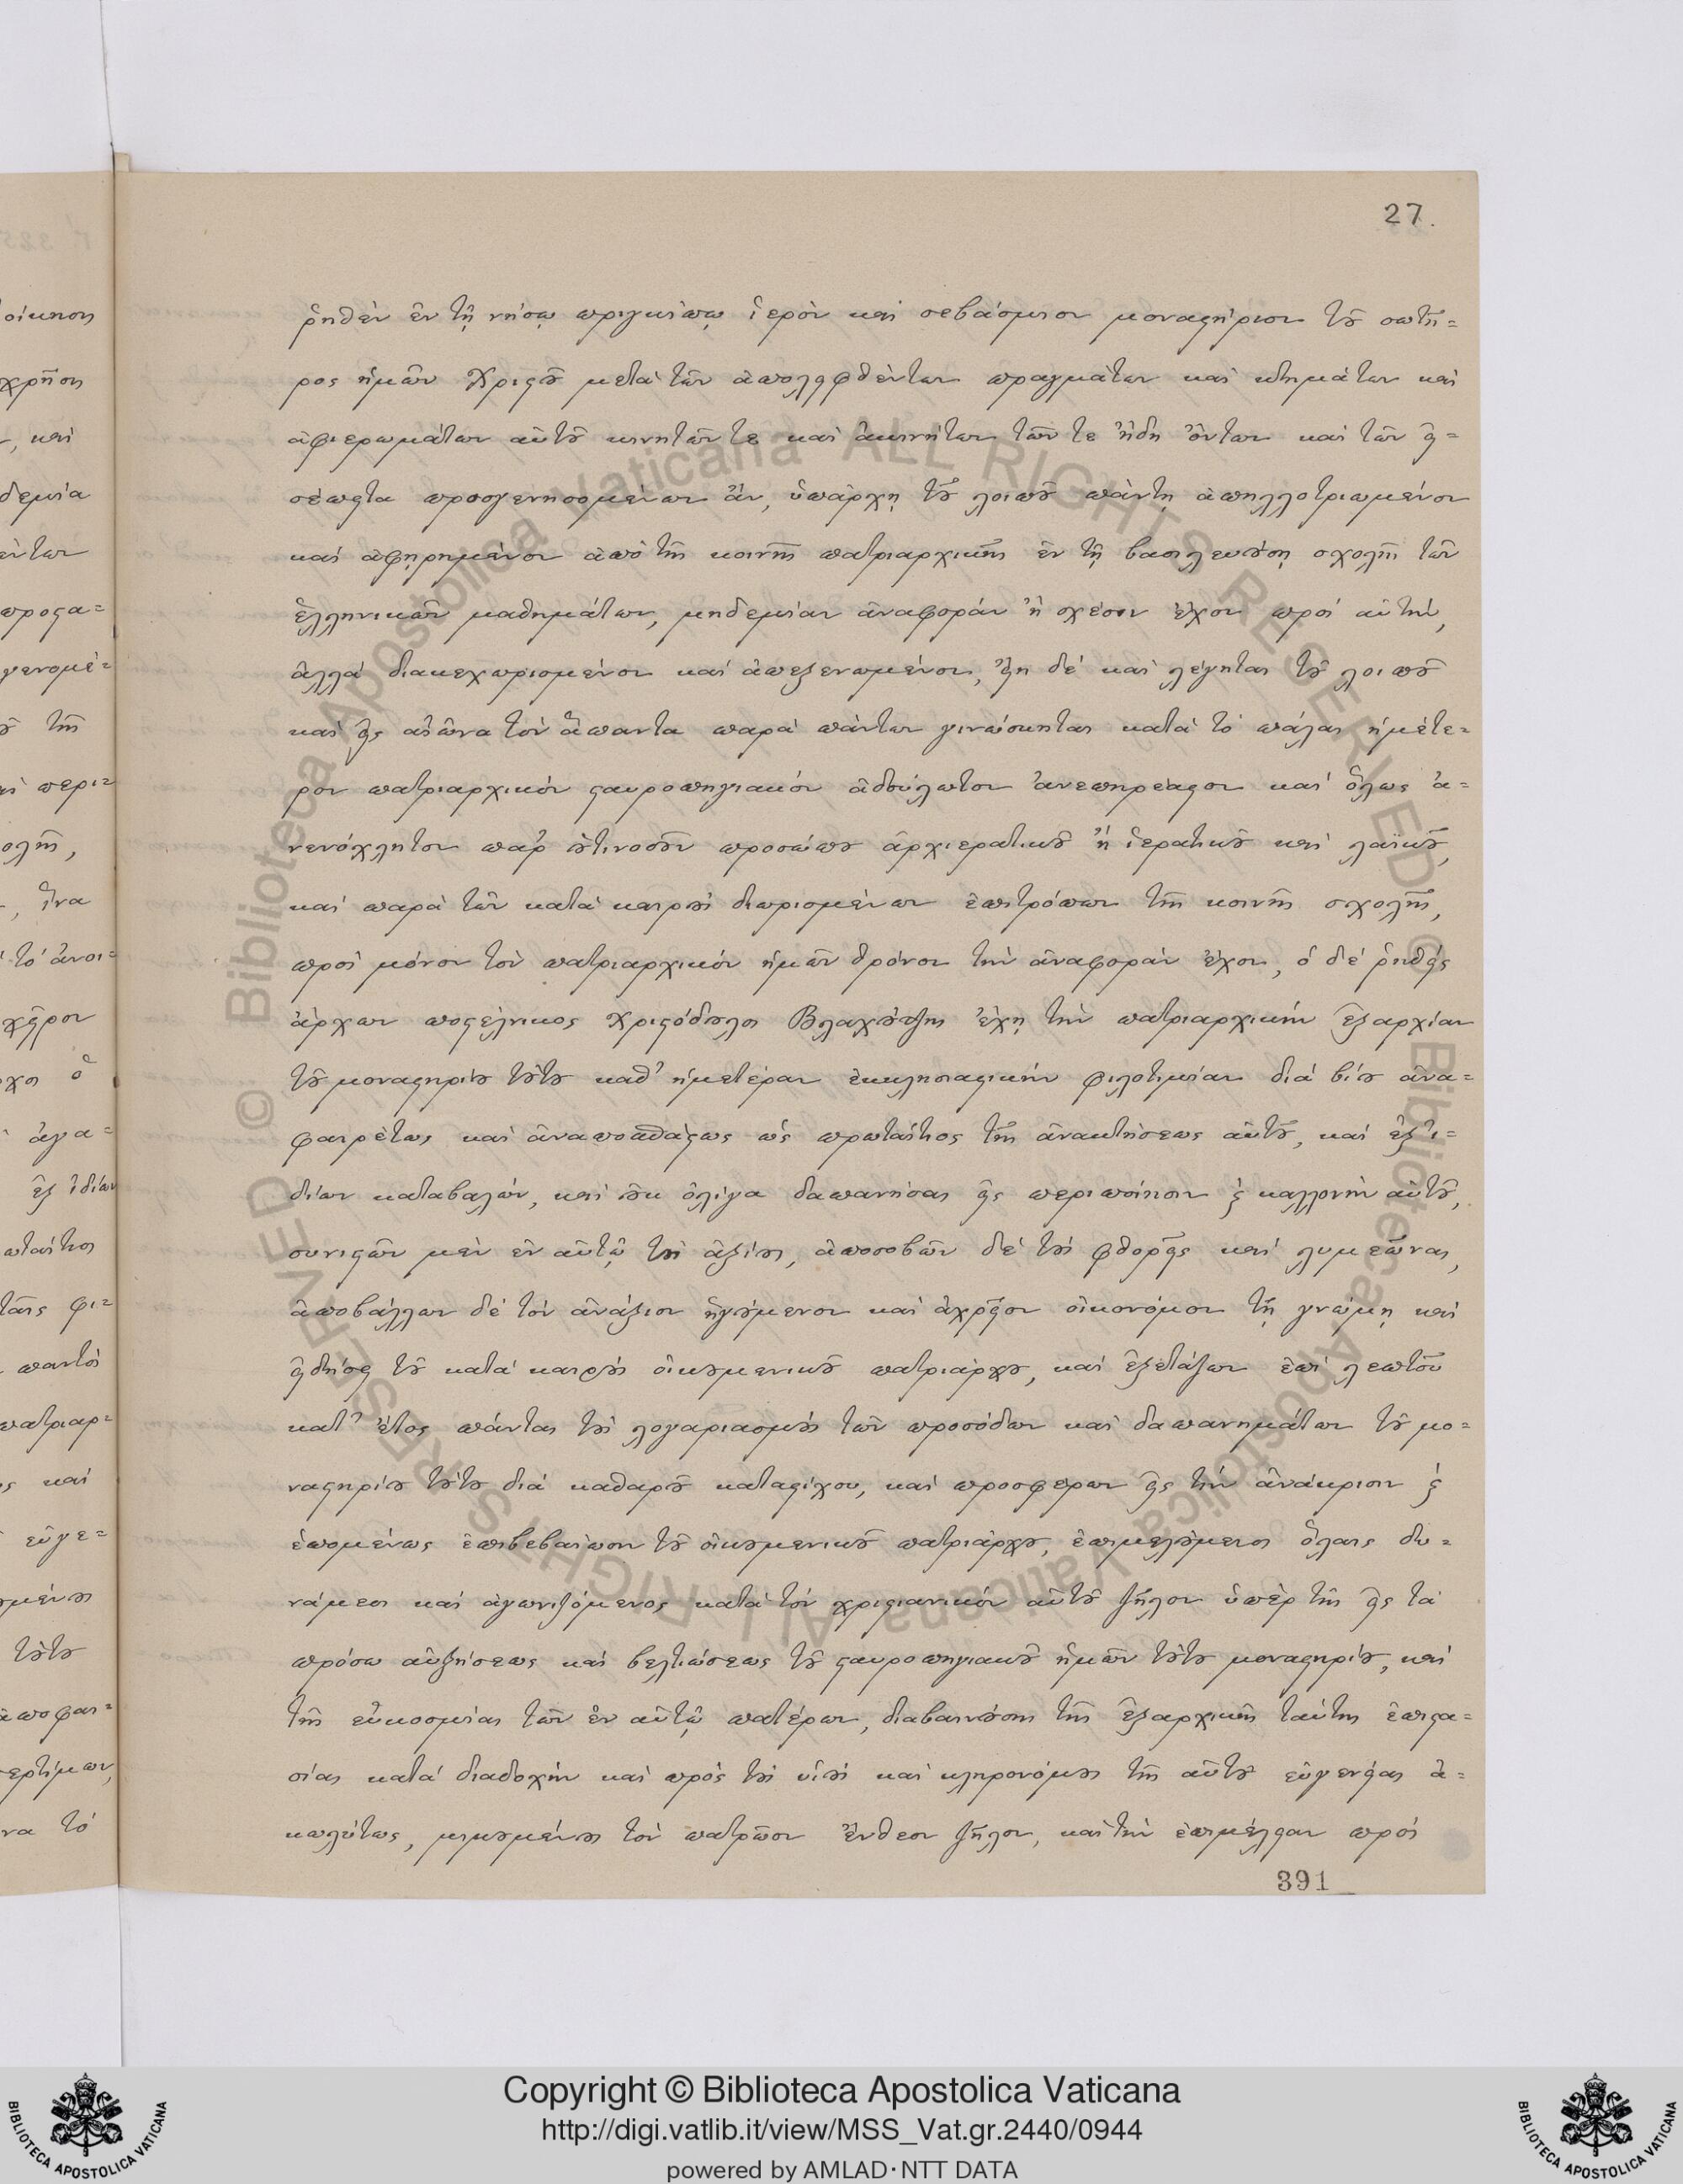 27.
ῥηθὲν ἐν τῇ νήσῳ πριγκίπῳ ἱερὸν καὶ σεβάσμιον μοναστήριον τοῦ σωτῆ=
ρος ἡμῶν Χριστοῦ μετὰ τῶν ἀποληφθέντων πραγμάτων καὶ κτημάτων καὶ
ἀφιερωμάτων αὐτοῦ κινητῶν τε καὶ ἀκινήτων τῶν τε ἤδη ὄντων καὶ τῶν εἰ=
σέπειτα προσγενησομένων ἂν, ὑπάρχῃ τοῦ λοιποῦ πάντῃ ἀπηλλοτριωμένον
καὶ ἀφῃρημένον ἀπὸ τῆς κοινῆς πατριαρχικῆς ἐν τῇ βασιλευούσῃ σχολῆς τῶν
ἑλληνικῶν μαθημάτων, μηδεμίαν ἀναφορὰν ἢ σχέσιν ἔχον πρὸς αὐτὴν,
ἀλλὰ διακεχωρισμένον καὶ ἀπεξενωμένον, ἔτι δὲ καὶ λέγηται τοῦ λοιποῦ
καὶ εἰς αἰῶνα τὸν ἅπαντα παρὰ πάντων γινώσκηται κατὰ τὸ πάλαι ἡμέτε=
ρον πατριαρχικὸν σταυροπηγιακὸν ἀδούλωτον ἀνεπηρέαστον καὶ ὅλως ἀ=
νενόχλητον παρ' οὑτινοσοῦν προσώπου ἀρχιερατικοῦ ἢ ἱερατικοῦ καὶ λαϊκοῦ,
καὶ παρὰ τῶν κατὰ καιροὺς διωρισμένων ἐπιτρόπων τῆς κοινῆς σχολῆς,
πρὸς μόνον τὸν πατριαρχικὸν ἡμῶν θρόνον τὴν ἀναφορὰν ἔχον, ὁ δὲ ῥηθεὶς
ἄρχων ποστέλνικος Χριστόδουλος Βλαχούτζης ἔχῃ τὴν πατριαρχικὴν ἐξαρχίαν
τοῦ μοναστηρίου τούτου καθ' ἡμετέραν ἐκκλησιαστικὴν φιλοτιμίαν διὰ βίου ἀνα=
φαιρέτως καὶ ἀναποσπάστως ὡς πρωταίτιος τῆς ἀνακτήσεως αὐτοῦ, καὶ ἐξ ἰ=
δίων καταβαλὼν, καὶ οὐκ ὀλίγα δαπανήσας εἰς περιποίησιν ϗ καλλονὴν αὐτοῦ,
συνιστῶν μὲν ἐν αὐτῷ τοὺς ἀξίους, ἀποσοβῶν δὲ τοὺς φθορεῖς καὶ λυμεῶνας,
ἀποβάλλων δὲ τὸν ἀνάξιον ἡγούμενον καὶ ἀχρεῖον οἰκονόμον τῇ γνώμῃ καὶ
εἰδήσει τοῦ κατὰ καιροὺς οἰκουμενικοῦ πατριάρχου, καὶ ἐξετάζων ἐπὶ λεπτοῦ
κατ' ἔτος πάντας τοὺς λογαριασμοὺς τῶν προσόδων καὶ δαπανημάτων τοῦ μο=
ναστηρίου τούτου διὰ καθαροῦ καταστίχου, καὶ προσφέρων εἰς τὴν ἀνάκρισιν ϗ
ἑπομένως ἐπιβεβαίωσιν τοῦ οἰκουμενικοῦ πατριάρχου, ἐπιμελούμενος ὅλαις δυ=
νάμεσι καὶ ἀγωνιζόμενος κατὰ τὸν χριστιανικὸν αὐτοῦ ζῆλον ὑπὲρ τῆς εἰς τὰ
πρόσω αὐξήσεως καὶ βελτιώσεως τοῦ σταυροπηγιακοῦ ἡμῶν τούτου μοναστηρίου, καὶ
τῆς εὐκοσμίας τῶν ἐν αὐτῷ πατέρων, διαβαινούσης τῆς ἐξαρχικῆς ταύτης ἐπιστα=
σίας κατὰ διαδοχὴν καὶ πρὸς τοὺς υἱοὺς καὶ κληρονόμους τῆς αὐτοῦ εὐγενείας ἀ=
κωλύτως, μιμουμένους τὸν πατρῷον ἔνθεον ζῆλον, καὶ τὴν ἐπιμέλειαν πρὸς
391
Copyright © Biblioteca Apostolica Vaticana
http://digi.vatlib.it/view/MSS_Vat.gr.2440/0944
powered by AMLAD·NTT DATA